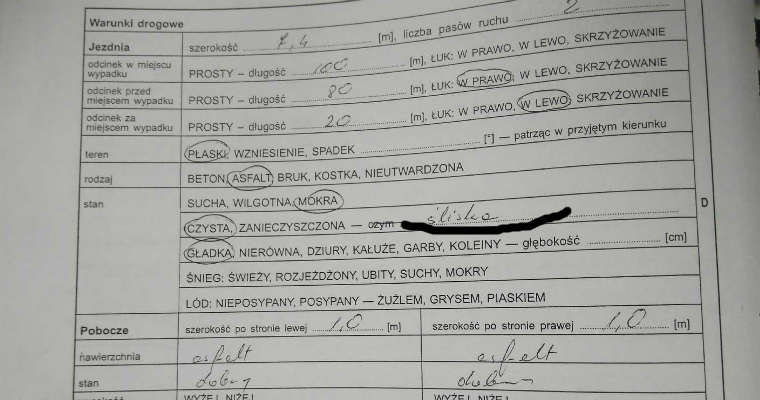 Warunki drogowe
Jezdnia szerokość 7,4 [m], liczba pasów ruchu 2
odcinek w miejscu wypadku PROSTY – długość 100 [m], ŁUK: W PRAWO, W LEWO, SKRZYŻOWANIE
odcinek przed miejscem wypadku PROSTY – długość 80 [m], ŁUK: W PRAWO, W LEWO, SKRZYŻOWANIE
odcinek za miejscem wypadku PROSTY – długość 20 [m], ŁUK: W PRAWO, W LEWO, SKRZYŻOWANIE
teren PŁASKI, WZNIESIENIE, SPADEK [°] — patrząc w przyjętym kierunku
rodzaj BETON, ASFALT, BRUK, KOSTKA, NIEUTWARDZONA
stan SUCHA, WILGOTNA, MOKRA
CZYSTA, ZANIECZYSZCZONA — czym śliska
D
GŁADKA, NIERÓWNA, DZIURY, KAŁUŻE, GARBY, KOLEINY — głębokość [cm]
ŚNIEG: ŚWIEŻY, ROZJEŻDŻONY, UBITY, SUCHY, MOKRY
LÓD: NIEPOSYPANY, POSYPANY — ŻUŻLEM, GRYSEM, PIASKIEM
Pobocze szerokość po stronie lewej 1,0 [m] szerokość po stronie prawej 1,0 [m]
nawierzchnia asfalt asfalt
stan dobry dobry
WYŻEJ, NIŻEJ WYŻEJ, NIŻEJ